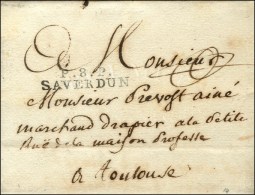 Monsieur
P.8.P.
SAVERDUN
Monsieur Prevost ainé
marchand drapier a la petite
Rue de la maison Professe
a Toulouse